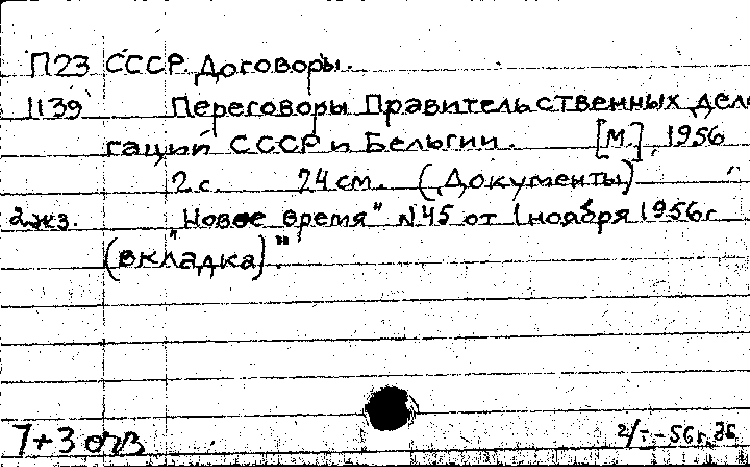 П23 СССР. Договоры.
1139 Переговоры Правительственных деле
гаций СССР и Бельгии. [М], 1956
2 с. 24 см. (Документы)
2жз. "Новое время" N45 от 1 ноября 1956 г
(вкладка)".
7+3